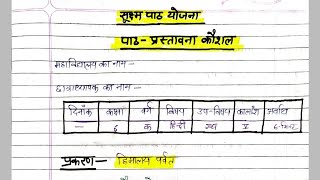 सूक्ष्म पाठ योजना
पाठ - प्रस्तावना कौशल
महाविद्यालय का नाम -
छात्राध्यापक का नाम -
दिनाँक कक्षा वर्ग विषय उप-विषय कालांश अवधि
— ६ क हिन्दी गद्य I
प्रकरण - हिमालय पर्वत